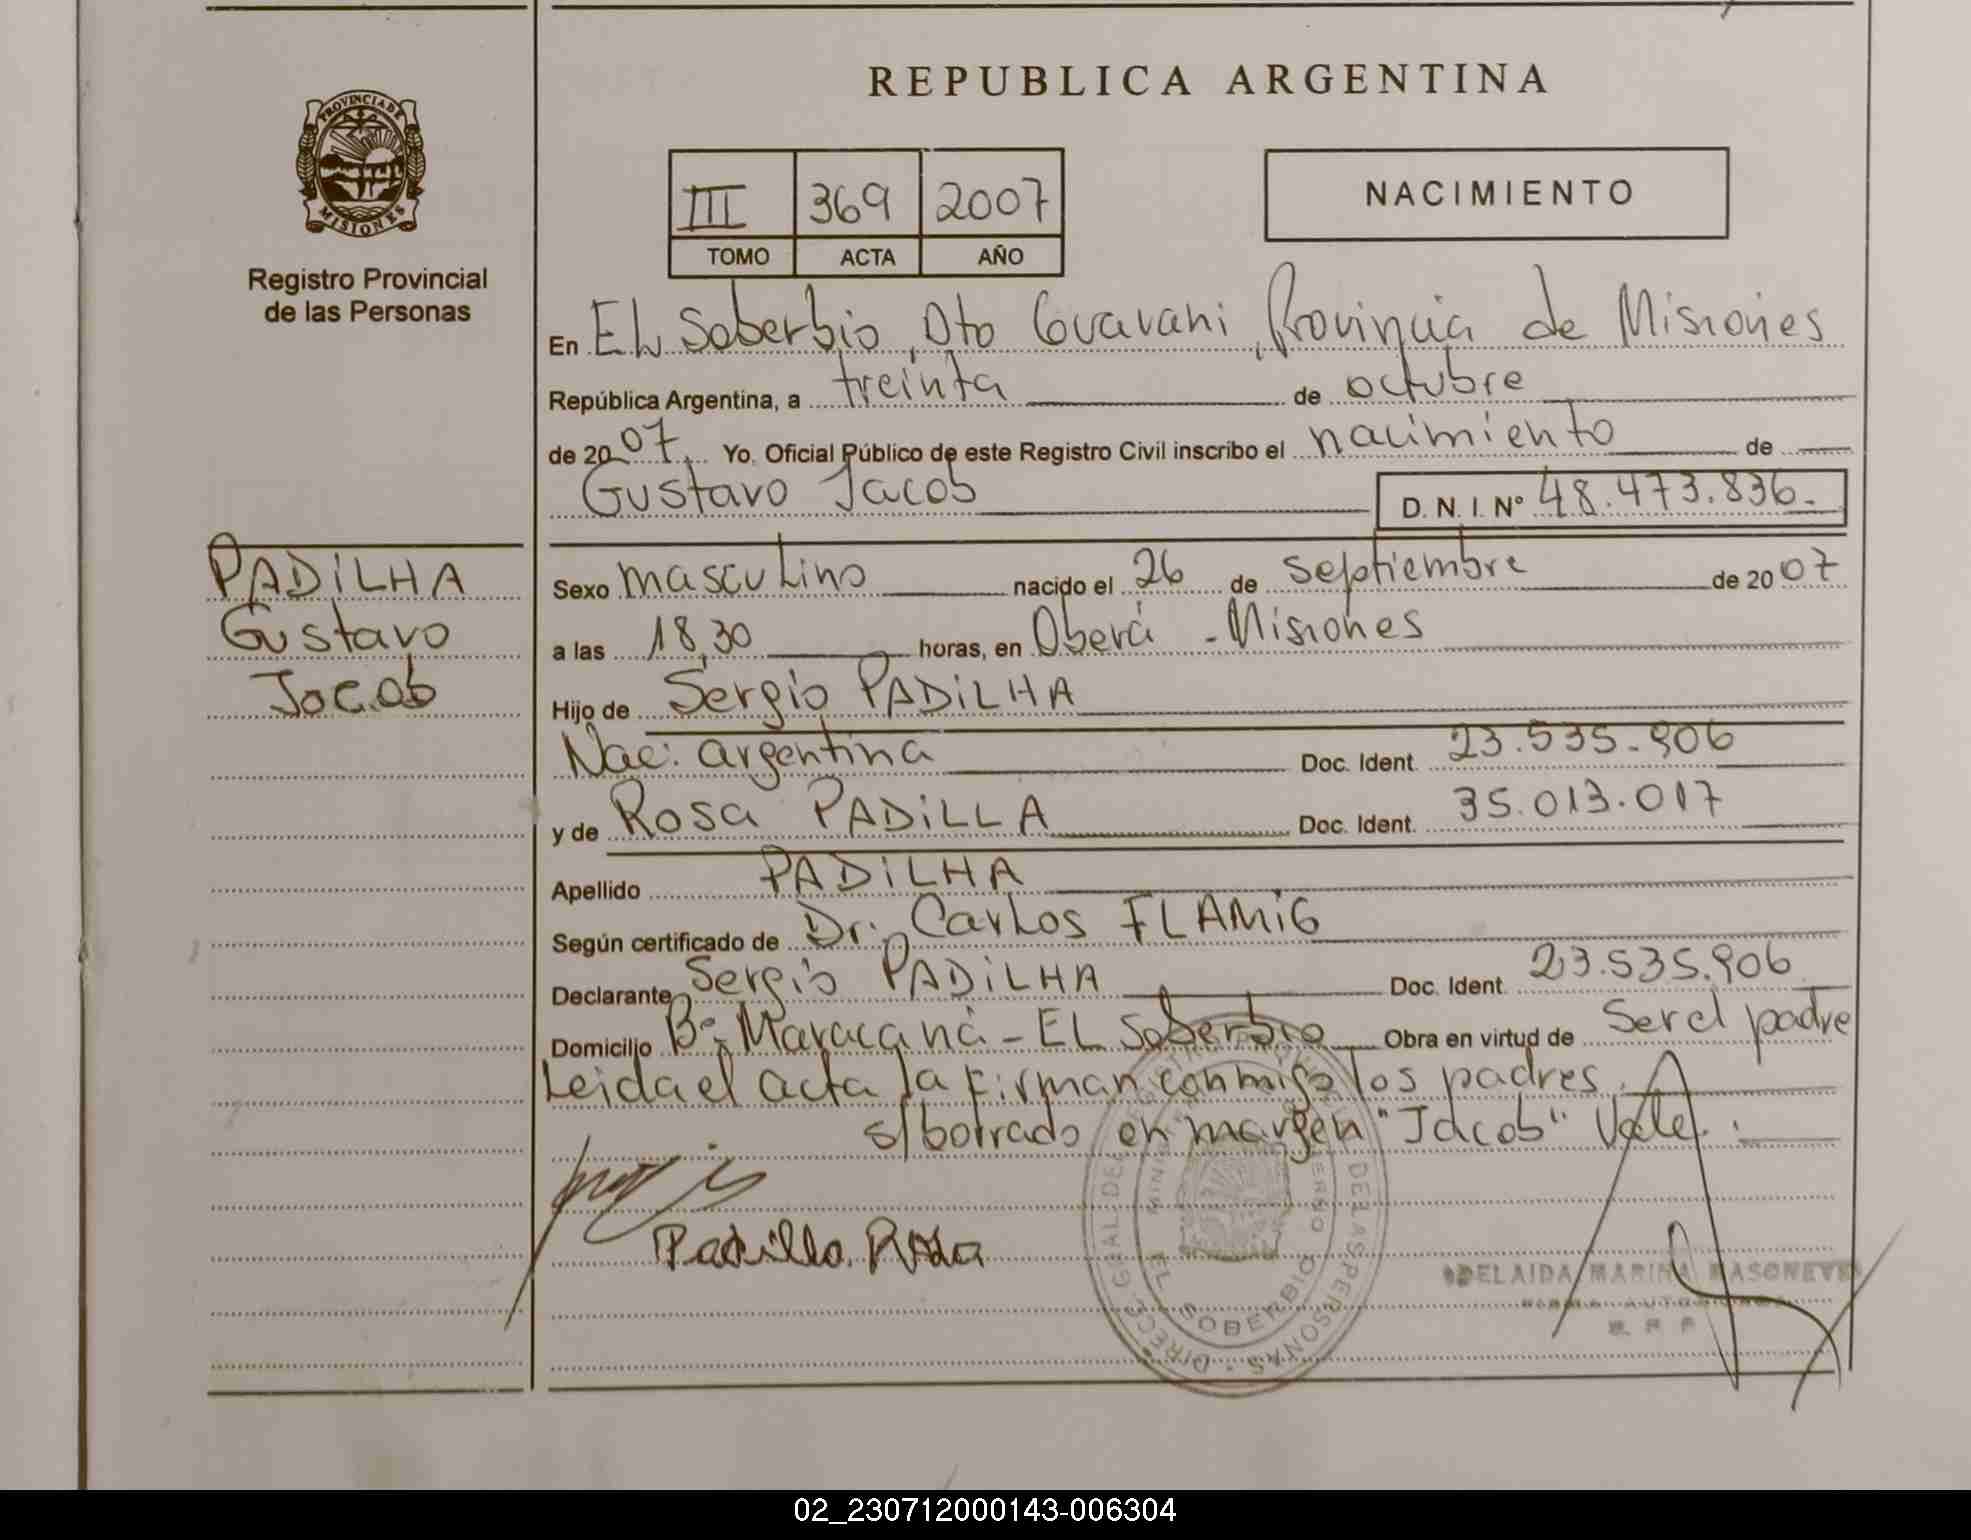 REPUBLICA ARGENTINA
PROVINCIA DE
MISIONES
Registro Provincial
de las Personas
III 369 2007
TOMO ACTA AÑO
NACIMIENTO
En EL Soberbio, Dto Guarani, Provincia de Misiones
República Argentina, a treinta de octubre
de 2007. Yo, Oficial Público de este Registro Civil inscribo el nacimiento de
Gustavo Jacob D. N. I. Nº 48.473.836.-
PADiLHA
Gustavo
Jacob
Sexo masculino nacido el 26 de septiembre de 2007
a las 18,30 horas, en Oberá - Misiones
Hijo de Sergio PADiLHA
Nac. argentina Doc. Ident. 23.535.906
y de Rosa PADiLLA Doc. Ident. 35.013.017
Apellido PADiLHA
Según certificado de Dr. Carlos FLAMiG
Declarante Sergio PADiLHA Doc. Ident. 23.535.906
Domicilio Bº Maracaná - EL Soberbio Obra en virtud de Ser el padre
Leida el acta la firman conmigo los padres.
s/borrado en margen "Jacob" Vale.
Padilla Rosa
EL SOBERBIO
DE LAS PERSONAS
ADELAIDA MARINA
FIRMA AUTORIZADA
02_230712000143-006304